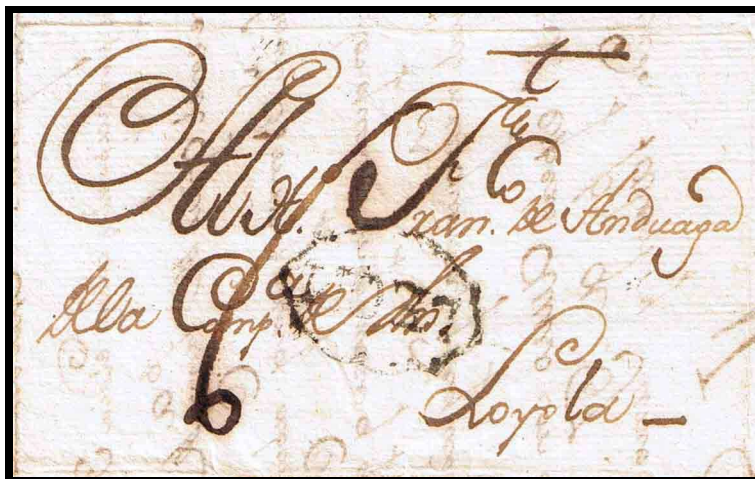 Al H. Fran.co de Anduaga
dela Comp.a de Jhs.
6
Loyola